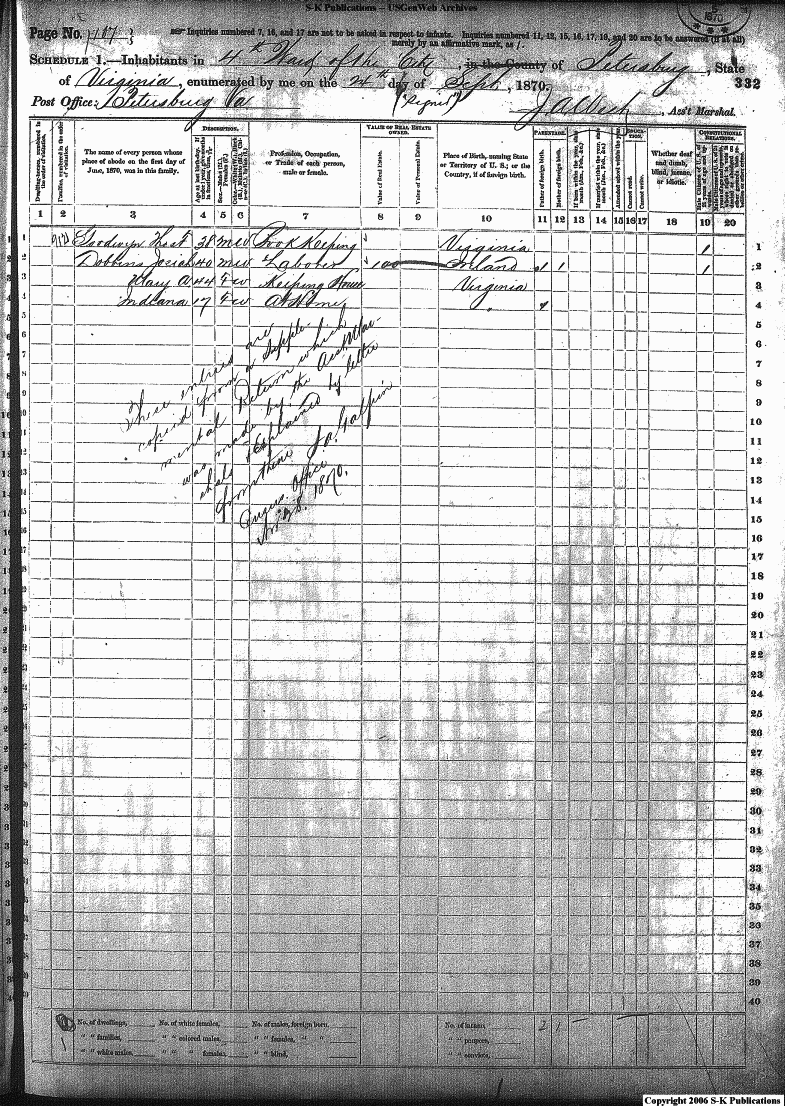 S-K Publications – USGenWeb Archives
Page No. 107
Inquiries numbered 7, 16, and 17 are not to be asked in respect to infants. Inquiries numbered 11, 12, 15, 16, 17, 19, and 20 are to be answered (if at all)
merely by an affirmative mark, as /.
Schedule 1.—Inhabitants in 4th Ward of the City, in the County of Petersburg, State
of Virginia, enumerated by me on the 24th day of Sept, 1870. 332
Post Office: Petersburg Va (Signed) Ass't Marshal.
Dwelling-houses, numbered in the order of visitation.
Families, numbered in the order of visitation.
The name of every person whose place of abode on the first day of June, 1870, was in this family.
Description.
Profession, Occupation, or Trade of each person, male or female.
Value of Real Estate owned.
Value of Real Estate.
Value of Personal Estate.
Place of Birth, naming State or Territory of U. S.; or the Country, if of foreign birth.
Parentage.
Father of foreign birth.
Mother of foreign birth.
Attended school within the year.
Education.
Cannot read.
Cannot write.
Whether deaf and dumb, blind, insane, or idiotic.
Constitutional Relations.
1 2 3 4 5 6 7 8 9 10 11 12 13 14 15 16 17 18 19 20
1 Goodwyn 38 m w Book Keeping Virginia 1 1
2 Dobbins Josiah 40 m w Laborer 100 1 1 1 2
3 Mary A 44 F w Keeping House Virginia 3
4 Indiana 17 F w At Home 1 4
These entries are
copied from a Supple-
mental Return which
was made by the Asst Mar-
shals & explained by letter
from them
Census Office
28. 1870.
5
6
7
8
9
10
11
12
13
14
15
16
17
18
19
20
21
22
23
24
25
26
27
28
29
30
31
32
33
34
35
36
37
38
39
40
No. of dwellings, No. of white females, No. of males, foreign born, No. of insane, 2 1
" " families, " " colored males, " " females, " " " " paupers,
" " white males, " " " females, " " blind, " " convicts,
Copyright 2006 S-K Publications